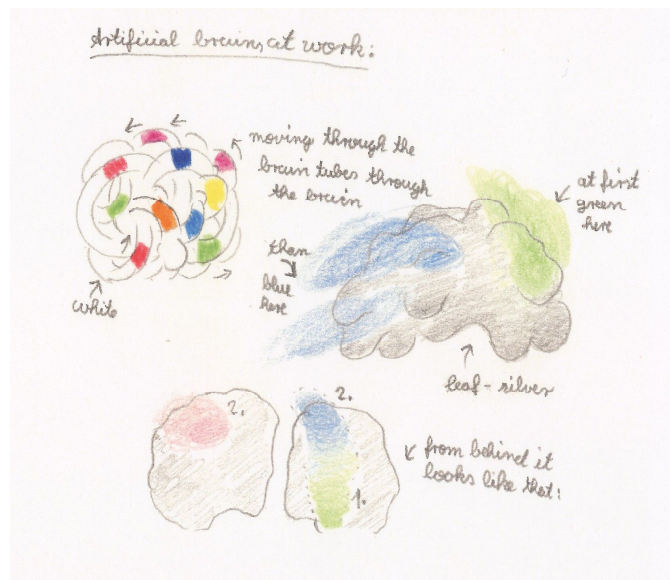 Artificial brains at work:
moving through the
brain tubes through
the brain
white
at first
green
here
than
blue
here
leaf-silver
2.
2.
1.
from behind it
looks like that: